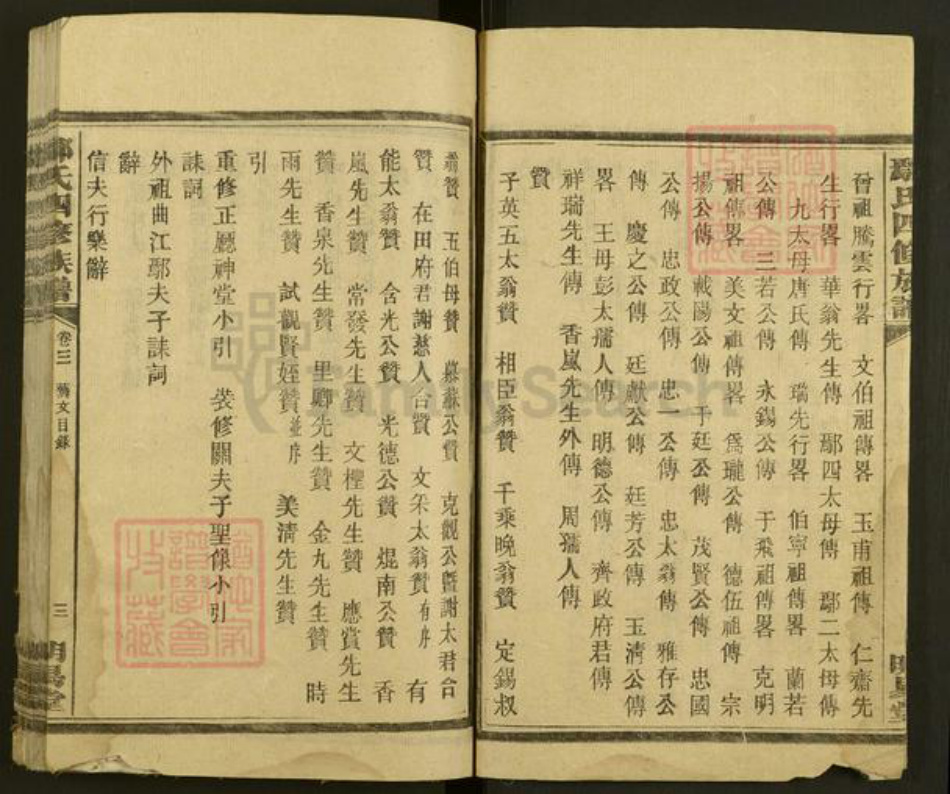 鄢氏四修族譜
晉祖騰雲行畧 文伯祖傳畧 玉甫祖傳 仁齋先
生行畧 華翁先生傳 鄢四太母傳 鄢二太母傳
九太母唐氏傳 瑞先行畧 伯寧祖傳畧 蘭若
公傳 三若公傳 永錫公傳 于飛祖傳畧 克明
祖傳畧 美文祖傳畧 為瓏公傳 德伍祖傳 宗
揚公傳 載陽公傳 于廷公傳 茂賢公傳 忠國
公傳 忠政公傳 忠一公傳 忠太翁傳 雅存公
傳 慶之公傳 廷獻公傳 廷芳公傳 玉清公傳
畧 王母彭太孺人傳 明德公傳 齊政府君傳
祥瑞先生傳 香嵐先生外傳 周孺人傳
贊
子英五太翁贊 相臣翁贊 千乘晚翁贊 定錫叔
翁贊 五伯母贊 慕蘇公贊 克觀公暨謝太君合
贊 在田府君謝慈人合贊 文釆太翁贊有序 有
能太翁贊 含光公贊 光德公贊 焜南公贊 香
嵐先生贊 常發先生贊 文樫先生贊 應賞先生
贊 香泉先生贊 里卿先生贊 金九先生贊 時
雨先生贊 試觀賢姪贊並序 美清先生贊
引
重修正廳神堂小引 裝修關夫子聖像小引
誄詞
外祖曲江鄢夫子誄詞
辭
信夫行樂辭
鄢氏四修族譜
卷三 藝文目錄
三
FamilySearch